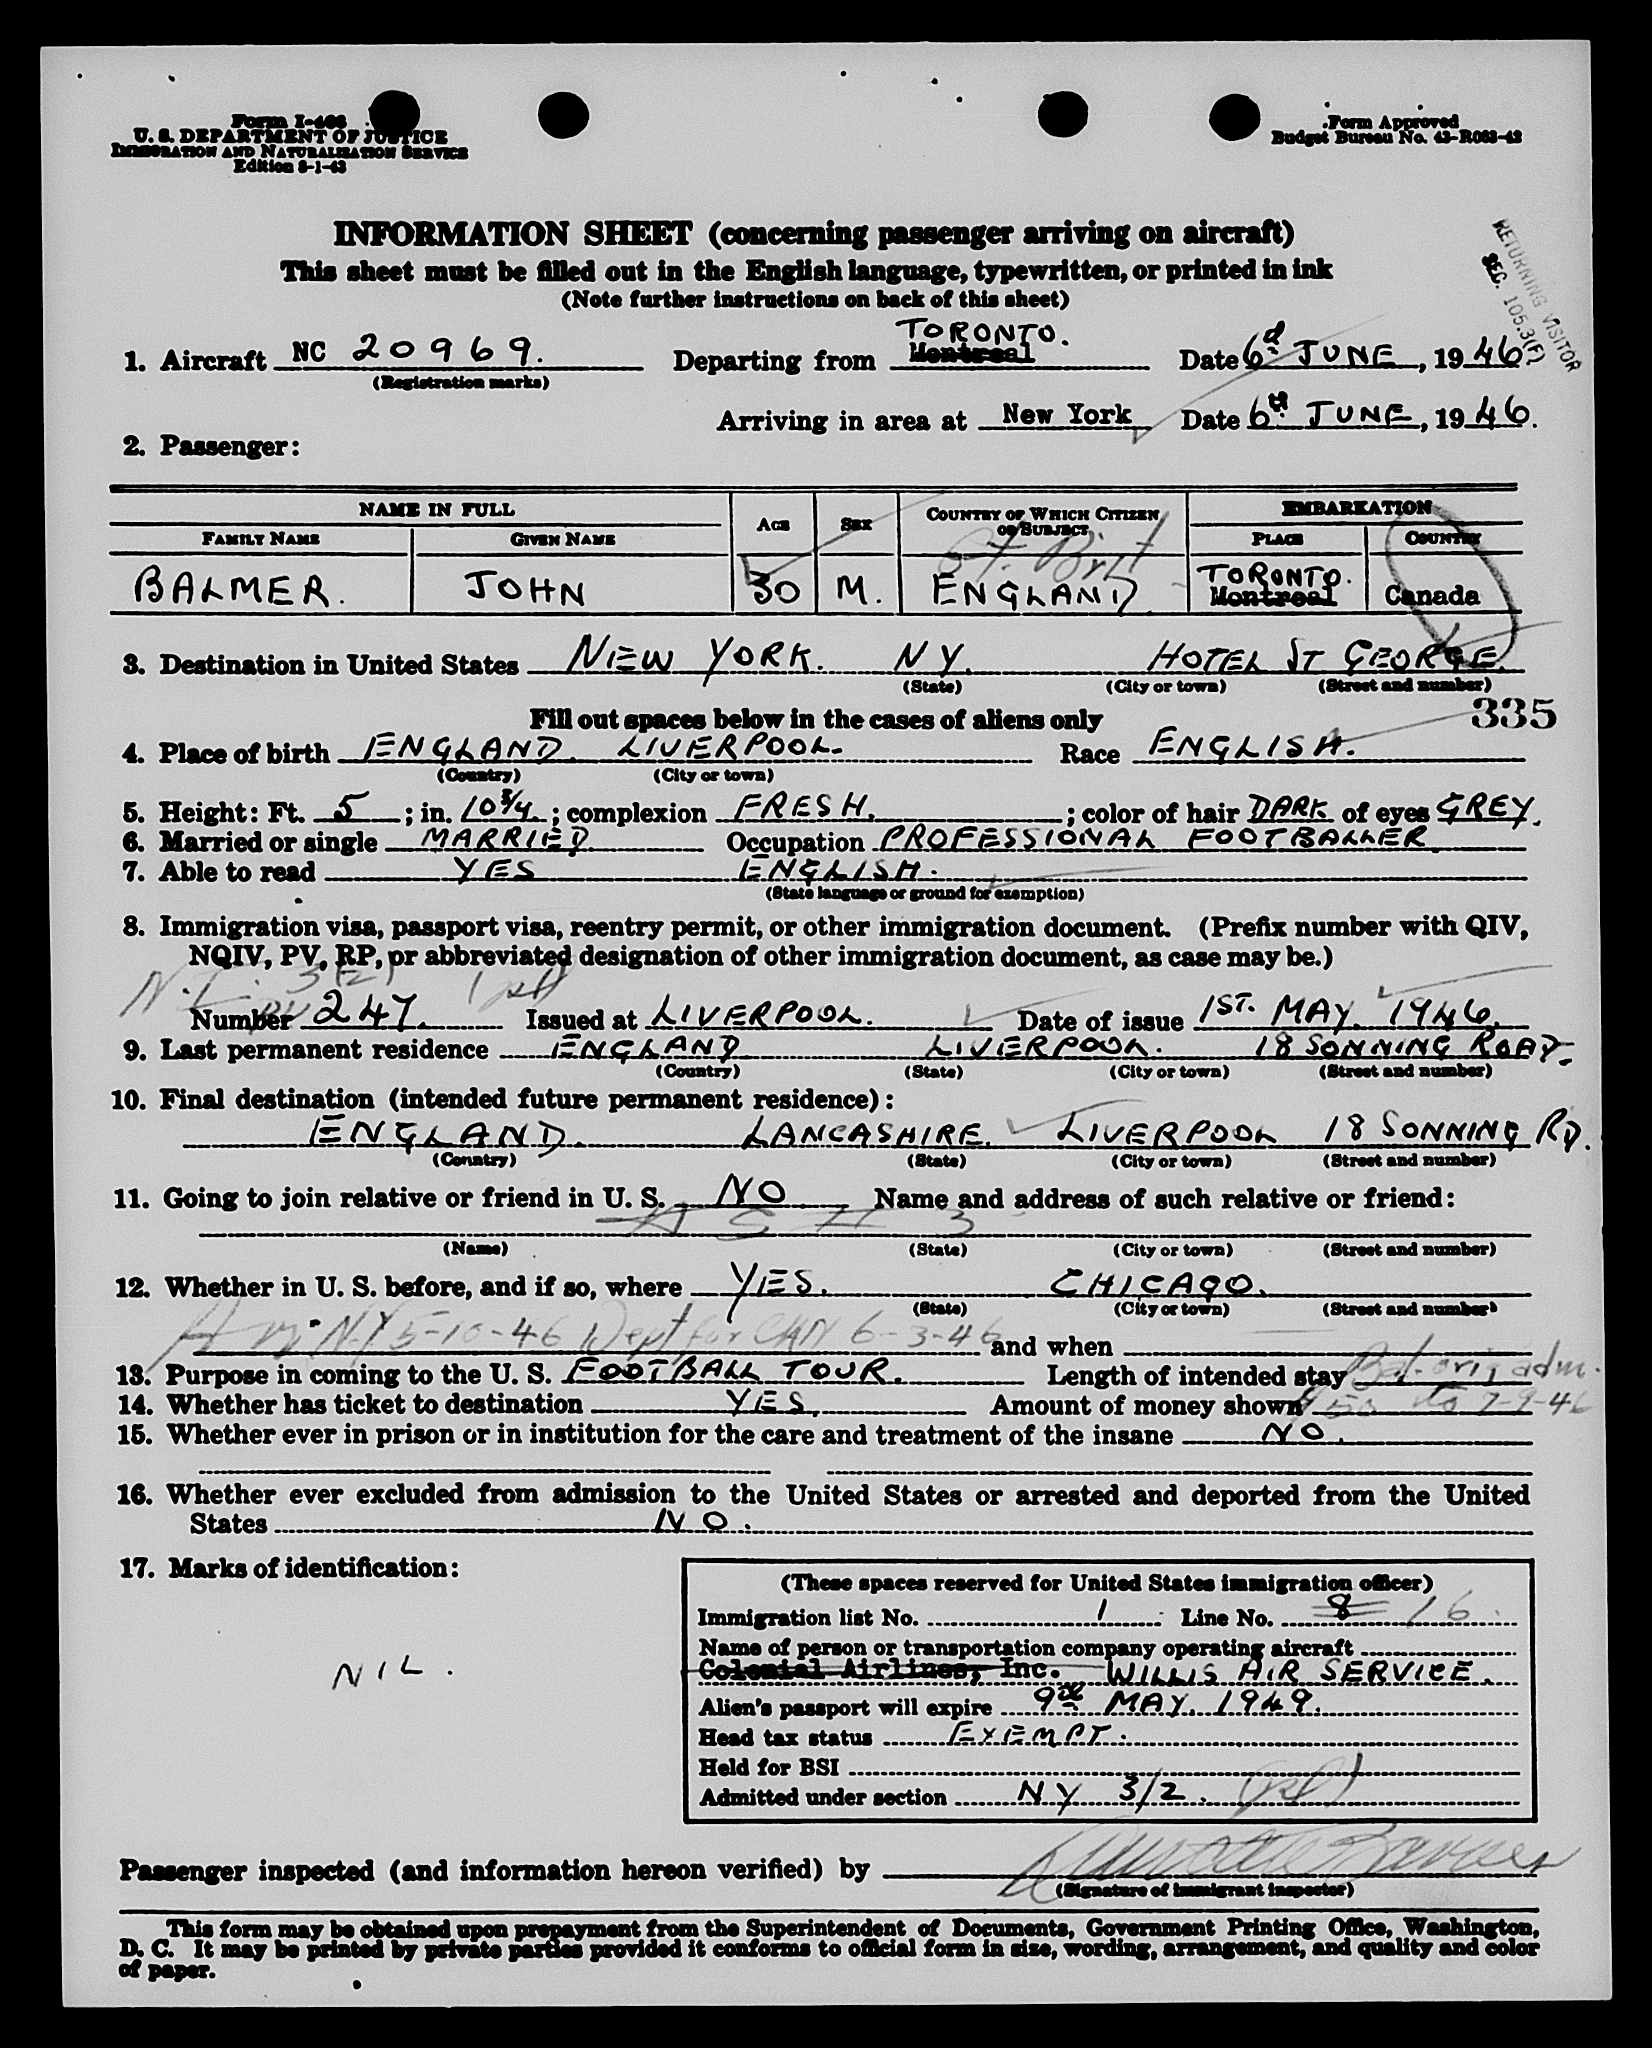 Form I-466
U. S. DEPARTMENT OF JUSTICE
IMMIGRATION AND NATURALIZATION SERVICE
Edition 8-1-43
Form Approved
Budget Bureau No. 43-R063-42
RETURNING VISITOR
SEC. 105.3(F)
INFORMATION SHEET (concerning passenger arriving on aircraft)
This sheet must be filled out in the English language, typewritten, or printed in ink
(Note further instructions on back of this sheet)
TORONTO.
1. Aircraft NC 20969. Departing from Montreal Date 6th JUNE, 1946
(Registration marks)
Arriving in area at New York Date 6th JUNE, 1946.
2. Passenger:
NAME IN FULL AGE SEX COUNTRY OF WHICH CITIZEN OR SUBJECT EMBARKATION
FAMILY NAME GIVEN NAME PLACE COUNTRY
Gt. Brit
BALMER. JOHN 30 M. ENGLAND TORONTO. Montreal Canada
3. Destination in United States NEW YORK. NY. HOTEL ST GEORGE.
(State) (City or town) (Street and number)
335
Fill out spaces below in the cases of aliens only
4. Place of birth ENGLAND. LIVERPOOL. Race ENGLISH.
(Country) (City or town)
5. Height: Ft. 5; in. 10 3/4; complexion FRESH.; color of hair DARK of eyes GREY.
6. Married or single MARRIED Occupation PROFESSIONAL FOOTBALLER.
7. Able to read YES ENGLISH.
(State language or ground for exemption)
8. Immigration visa, passport visa, reentry permit, or other immigration document. (Prefix number with QIV,
NQIV, PV, RP, or abbreviated designation of other immigration document, as case may be.)
3(2)
Number PV 247. Issued at LIVERPOOL. Date of issue 1ST. MAY. 1946.
9. Last permanent residence ENGLAND LIVERPOOL. 18 SONNING ROAD.
(Country) (State) (City or town) (Street and number)
10. Final destination (intended future permanent residence):
ENGLAND. LANCASHIRE. LIVERPOOL 18 SONNING RD.
(Country) (State) (City or town) (Street and number)
11. Going to join relative or friend in U. S. NO Name and address of such relative or friend:
(Name) (State) (City or town) (Street and number)
12. Whether in U. S. before, and if so, where YES. CHICAGO.
(State) (City or town) (Street and number)
Arr. N.Y 5-10-46 Dept for CAN 6-3-46 and when
13. Purpose in coming to the U. S. FOOTBALL TOUR. Length of intended stay Bal. orig adm.
14. Whether has ticket to destination YES. Amount of money shown 50 to 7-9-46
15. Whether ever in prison or in institution for the care and treatment of the insane NO.
16. Whether ever excluded from admission to the United States or arrested and deported from the United
States NO.
17. Marks of identification:
NIL.
(These spaces reserved for United States immigration officer)
Immigration list No. 1 Line No. 8 16.
Name of person or transportation company operating aircraft
Colonial Airlines, Inc. WILLIS AIR SERVICE.
Alien's passport will expire 9th MAY. 1949.
Head tax status EXEMPT.
Held for BSI
Admitted under section NY 3/2.
Passenger inspected (and information hereon verified) by
(Signature of immigrant inspector)
This form may be obtained upon prepayment from the Superintendent of Documents, Government Printing Office, Washington,
D. C. It may be printed by private parties provided it conforms to official form in size, wording, arrangement, and quality and color
of paper.